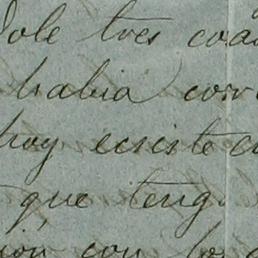 dole tres cua
habia corr
hoy ecsiste c
que teng
ion con los